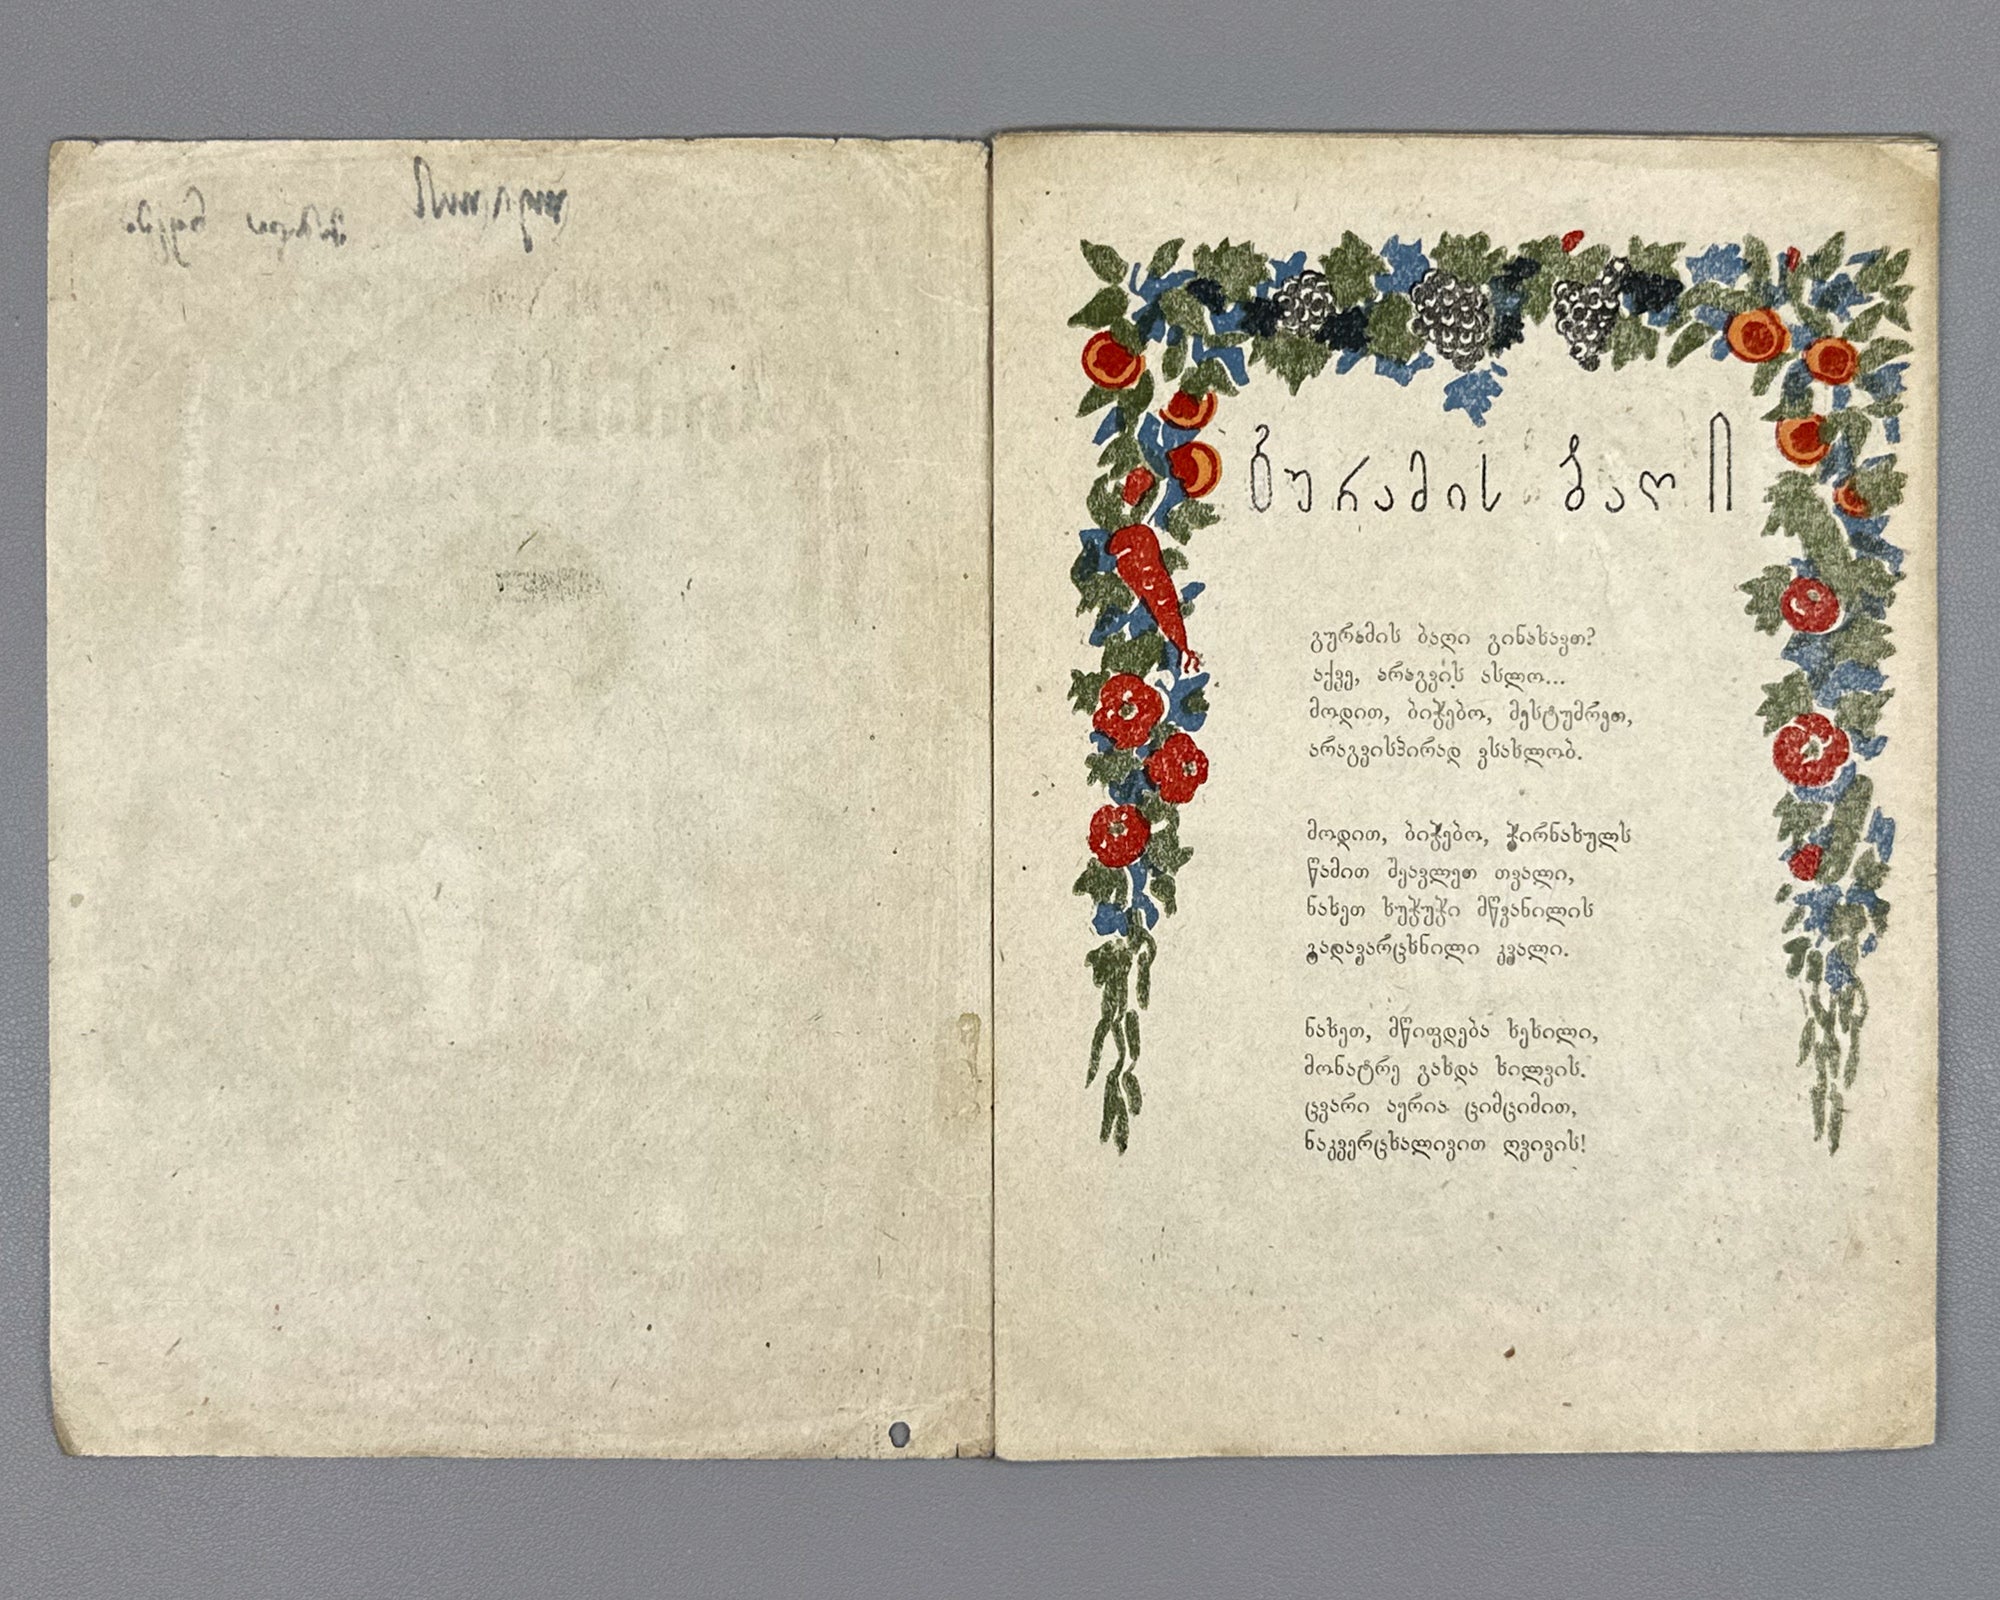 გურამის ბაღი
გურამის ბაღი გინახავთ?
აქვე, არაგვის ახლო...
მოდით, ბიჭებო, მესტუმრეთ,
არაგვისპირად ვსახლობ.
მოდით, ბიჭებო, ჭირნახულს
წამით შეავლეთ თვალი,
ნახეთ ხუჭუჭი მწვანილის
გადავარცხნილი კვალი.
ნახეთ, მწიფდება ხეხილი,
მონატრე გახდა ხილვის.
ცვარი აურია ციმციმით,
ნაკვერცხალივით ღვივის!